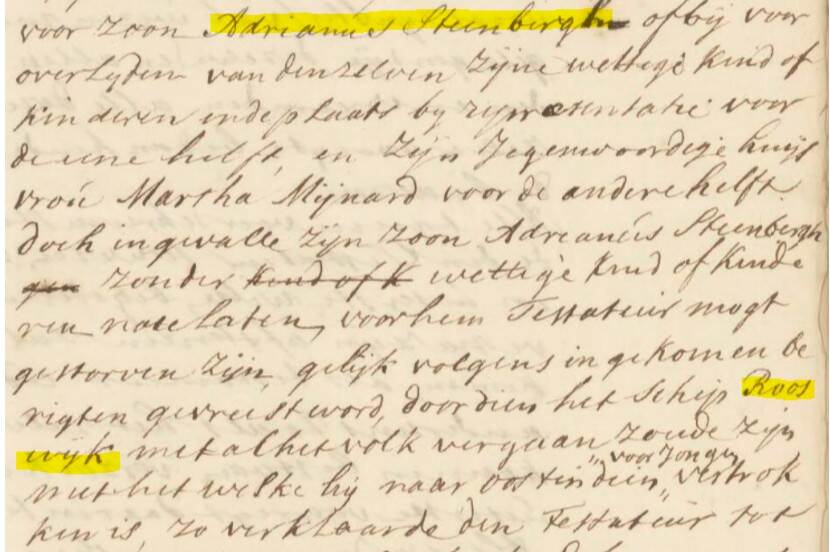 voor zoon Adrianus Steenbergh of bij voor
overlyden van denzelven zijne wettige kind of
kinderen in de plaats by representatie voor
de eene helft, en zijn Jegenwoordige huijs
vroú Martha Mijnard voor de andere helft.
doch ingevalle zijn zoon Adrianús Steenbergh
gen zonder kind of k wettige kind of kinde
ren natelaten, voor hem Testateur mogt
gestorven zijn, gelijk volgens ingekomen be
rigten gevreest word, door dien het schip Roos
wijk met al het volk vergaan zoude zijn
met het welke hij naar oostindien „voor jongen„ vertrok
ken is, zo verklaarde den Testateúr tot